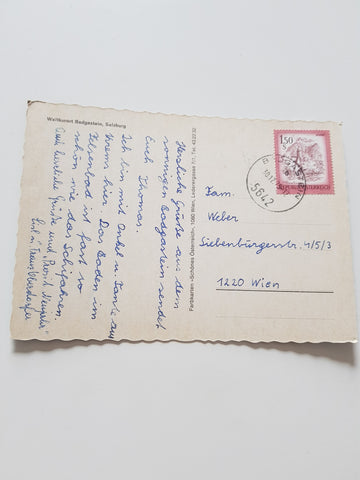 Weltkurort Badgastein, Salzburg
Herzliche Grüße aus dem
sonnigen Badgastein sendet
Euch Thomas.
Ich bin mit Onkel u. Tante auf
hier. Das Baden im
Felsenbad ist fast so
schön wie das Schifahren.
Auch herzliche Grüße und "Prosit Neujahr"
Farbkarten »Schönes Österreich«, 1060 Wien, Tel. 43 22 32
1.50
REPUBLIK ÖSTERREICH
5642
Fam.
Weber
Siebenbürgerstr. 4/5/3
1220 Wien